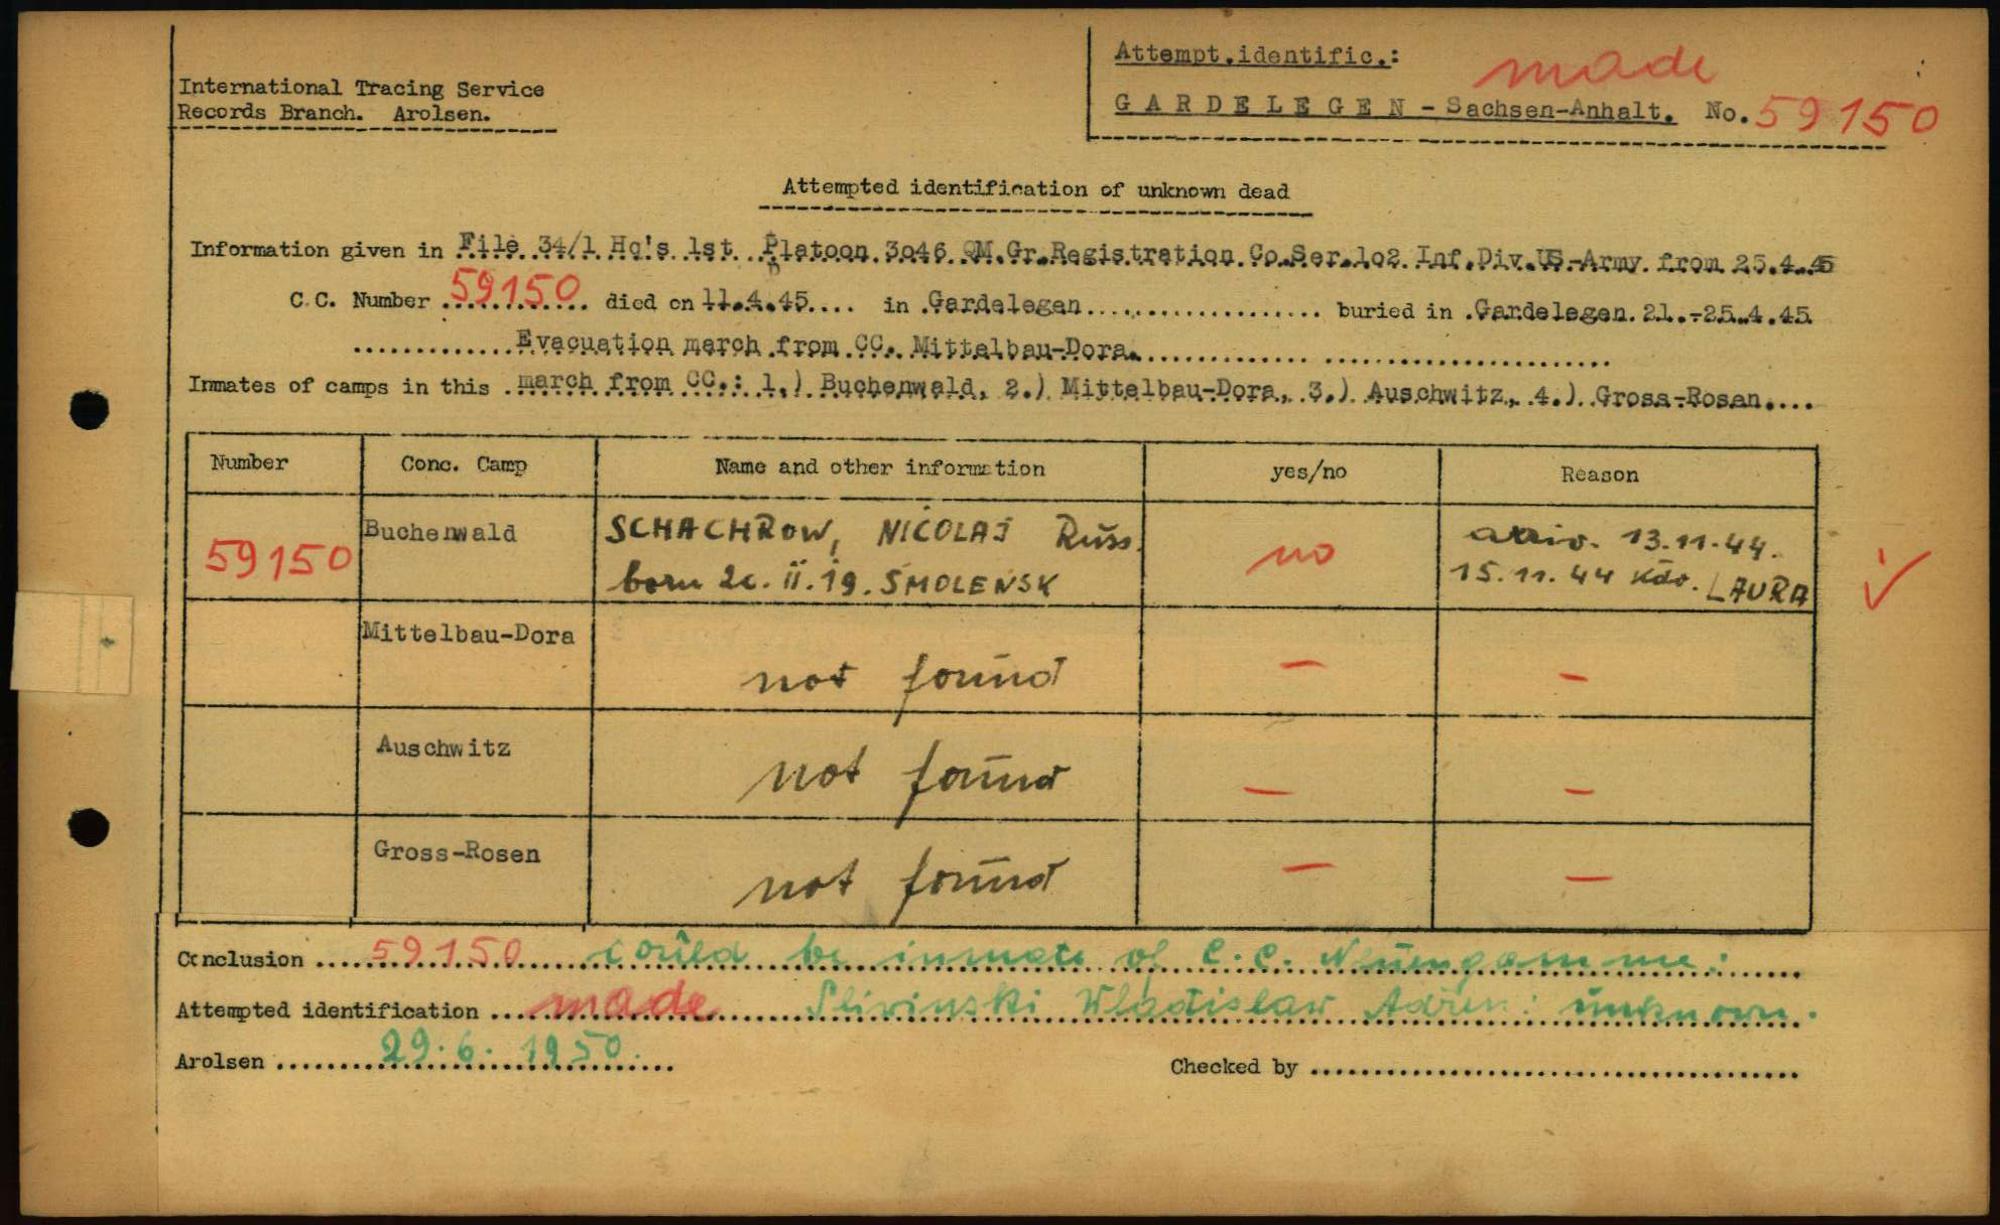 International Tracing Service
Records Branch. Arolsen.
Attempt.identific.: made
GARDELEGEN - Sachsen-Anhalt. No. 59150
Attempted identification of unknown dead
Information given in File 34/1 Hq's 1st Platoon 3o46 QM.Gr.Registration.Co.Ser.1o2 Inf.Div.US-Army from 25.4.45
C.C. Number 59150 died on 11.4.45.... in Gardelegen buried in Gardelegen 21.-25.4.45
Evacuation march from CC. Mittelbau-Dora.
Inmates of camps in this march from CC.: 1.) Buchenwald, 2.) Mittelbau-Dora, 3.) Auschwitz, 4.) Gross-Rosen
Number Conc. Camp Name and other information yes/no Reason
59150 Buchenwald SCHACHROW, NICOLAJ Russ. no arriv. 13.11.44.
born II.19. SMOLENSK 15.11.44 Kdo. LAURA
Mittelbau-Dora not found — —
Auschwitz not found — —
Gross-Rosen not found — —
Conclusion 59150 could be inmate of C.C. Neuengamme:
Attempted identification made Slivinski Wladislaw unknown.
Arolsen 29.6.1950.
Checked by